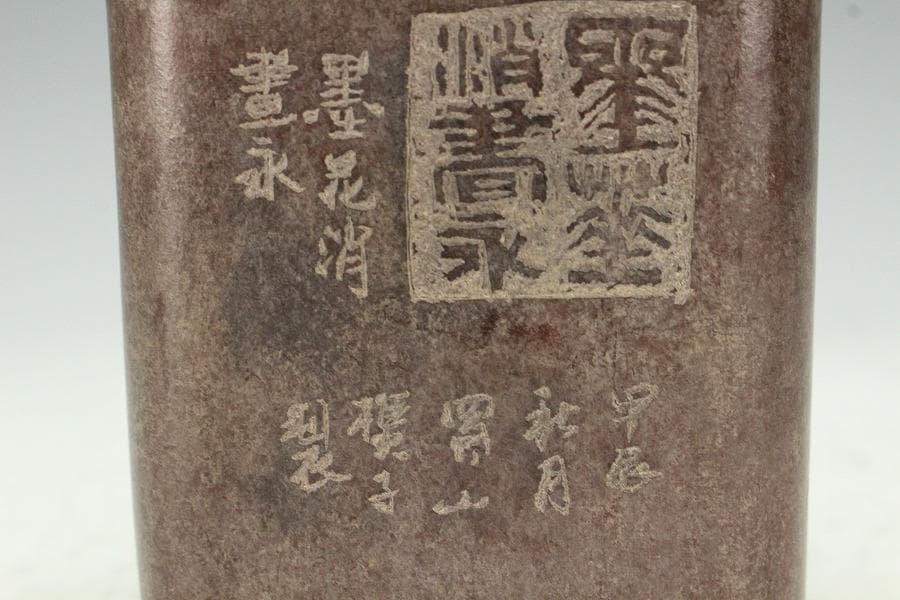 墨華
消晝永
墨花消
晝永
甲辰
秋月
胥山
樵子
製